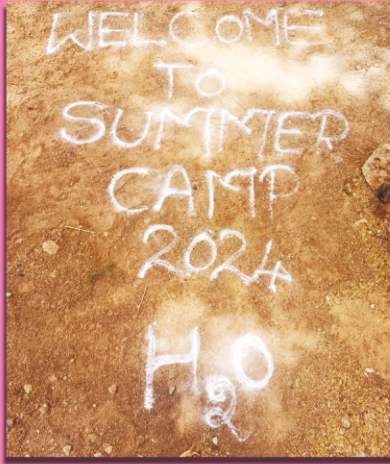 WELCOME
TO
SUMMER
CAMP
2024
H₂O